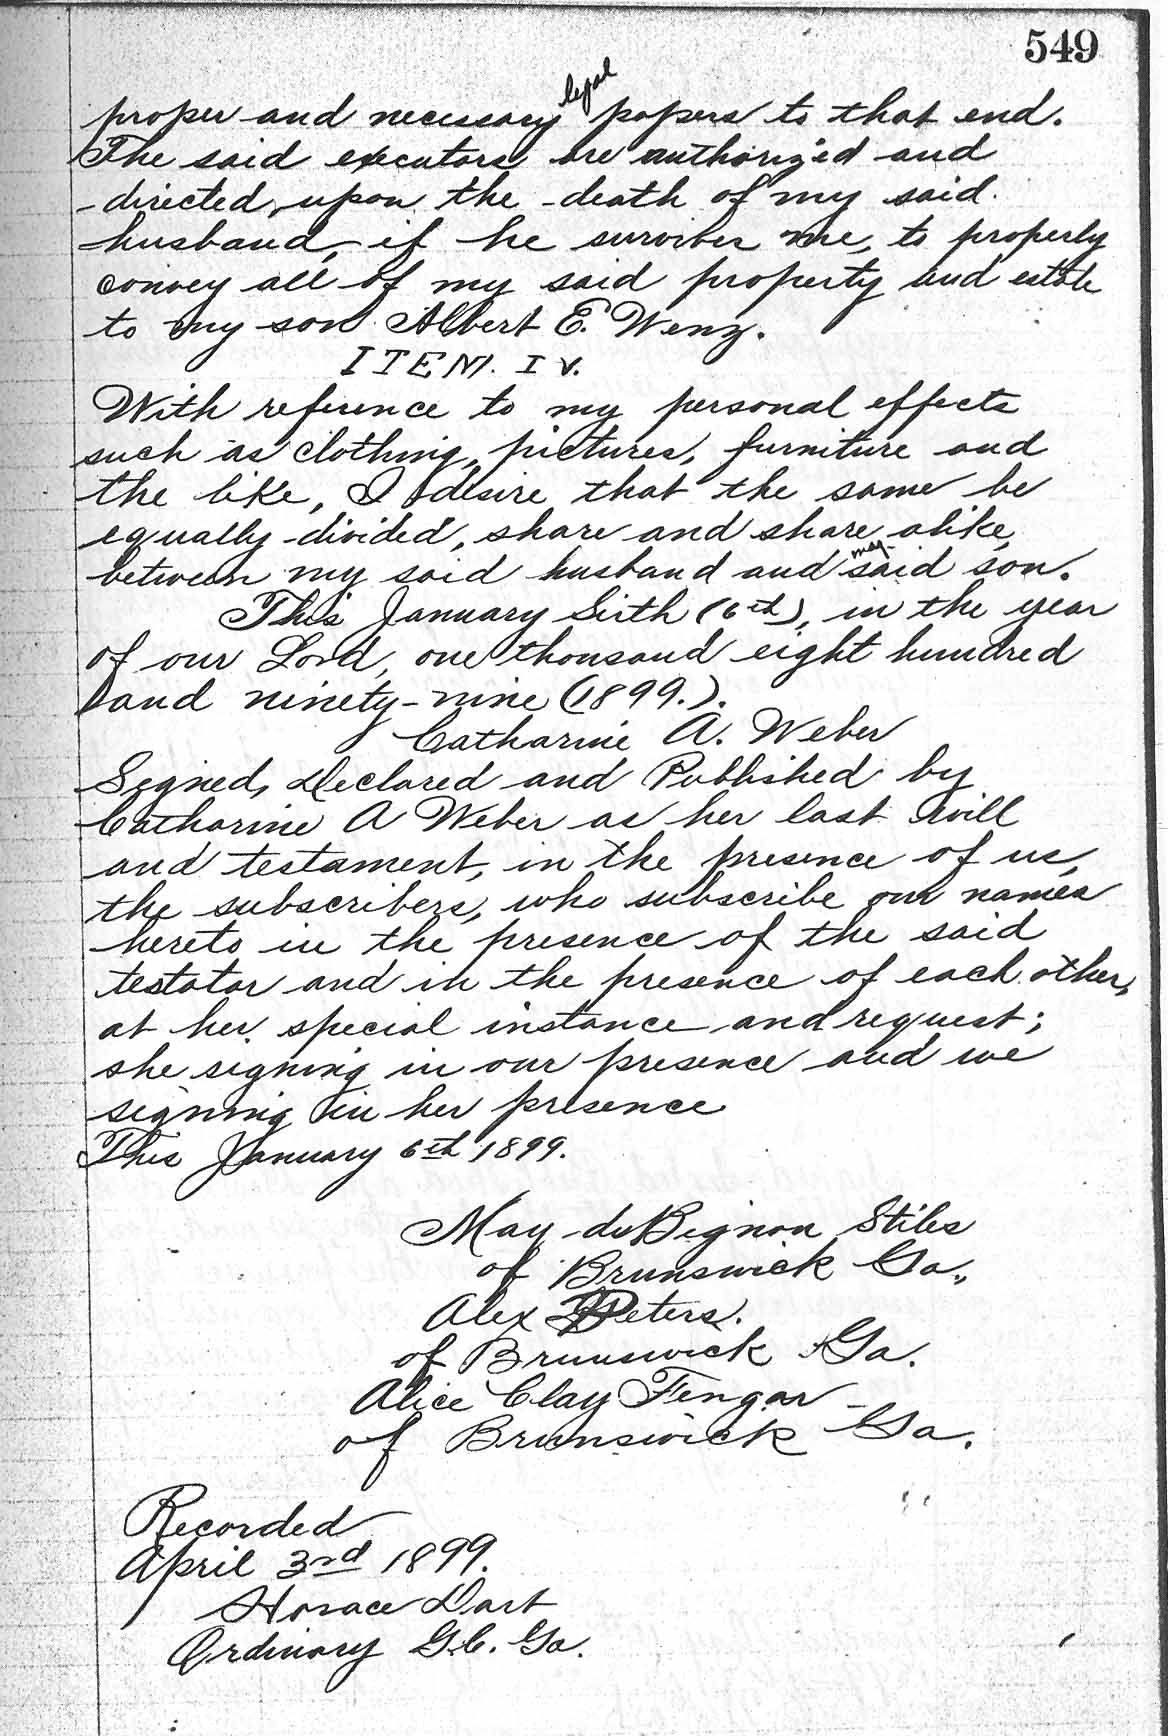 549
proper and necessary legal papers to that end.
The said executors are authorized and
directed, upon the death of my said
husband, if he survives me, to properly
convey all of my said property and estate
to my son Albert E. Wenz.
ITEM. IV.
With reference to my personal effects
such as clothing, pictures, furniture and
the like, I desire that the same be
equally divided, share and share alike,
between my said husband and my said son.
This January Sixth (6th), in the year
of our Lord, one thousand eight hundred
and ninety-nine (1899.).
Catharine A. Weber
Signed, Declared and Published by
Catharine A Weber as her last will
and testament, in the presence of us,
the subscribers, who subscribe our names
hereto in the presence of the said
testator and in the presence of each other,
at her special instance and request;
she signing in our presence and we
signing in her presence
This January 6th 1899.
May duBignon Stiles
of Brunswick Ga.,
Alex Peters.
of Brunswick Ga.
Alice Clay Fengar
of Brunswick Ga.
Recorded
April 3rd 1899.
Horace Dart
Ordinary G.C. Ga.